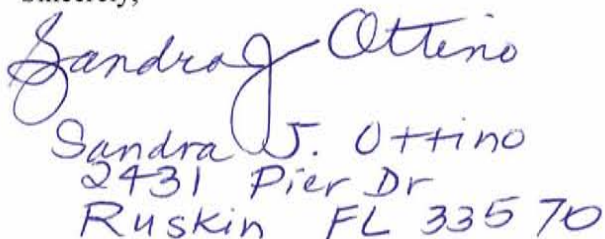 Sincerely,
Sandra J Ottino
Sandra J. Ottino
2431 Pier Dr
Ruskin FL 33570